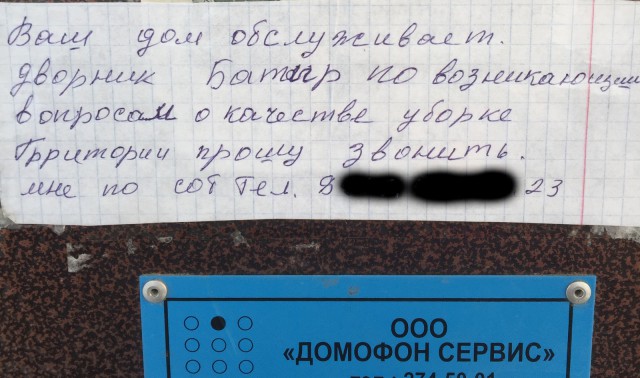 Ваш дом обслуживает.
дворник Батыр по возникающим
вопросам о качестве уборке
Трритории прошу звонить.
мне по сот Тел. 8 23
ООО
«ДОМОФОН СЕРВИС»